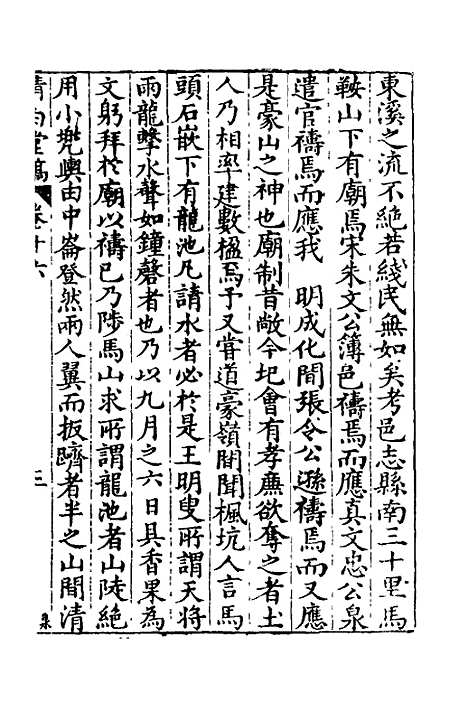 東溪之流不絶若綫民無如矣考邑志縣南三十里馬
鞍山下有廟焉宋朱文公簿邑禱焉而應真文忠公泉
遣官禱焉而應我　明成化間張令公遜禱焉而又應
是豪山之神也廟制昔敞今圮會有孝廉欲奪之者土
人乃相率建數楹焉予又嘗道豪嶺間聞楓坑人言馬
頭石嵌下有龍池凡請水者必於是王明叟所謂天將
雨龍擊水聲如鐘磬者也乃以九月之六日具香果為
文躬拜於廟以禱已乃陟馬山求所謂龍池者山陡絶
用小兠輿由中崙登然兩人翼而扳躋者半之山間清
清白堂稿
卷十六
三